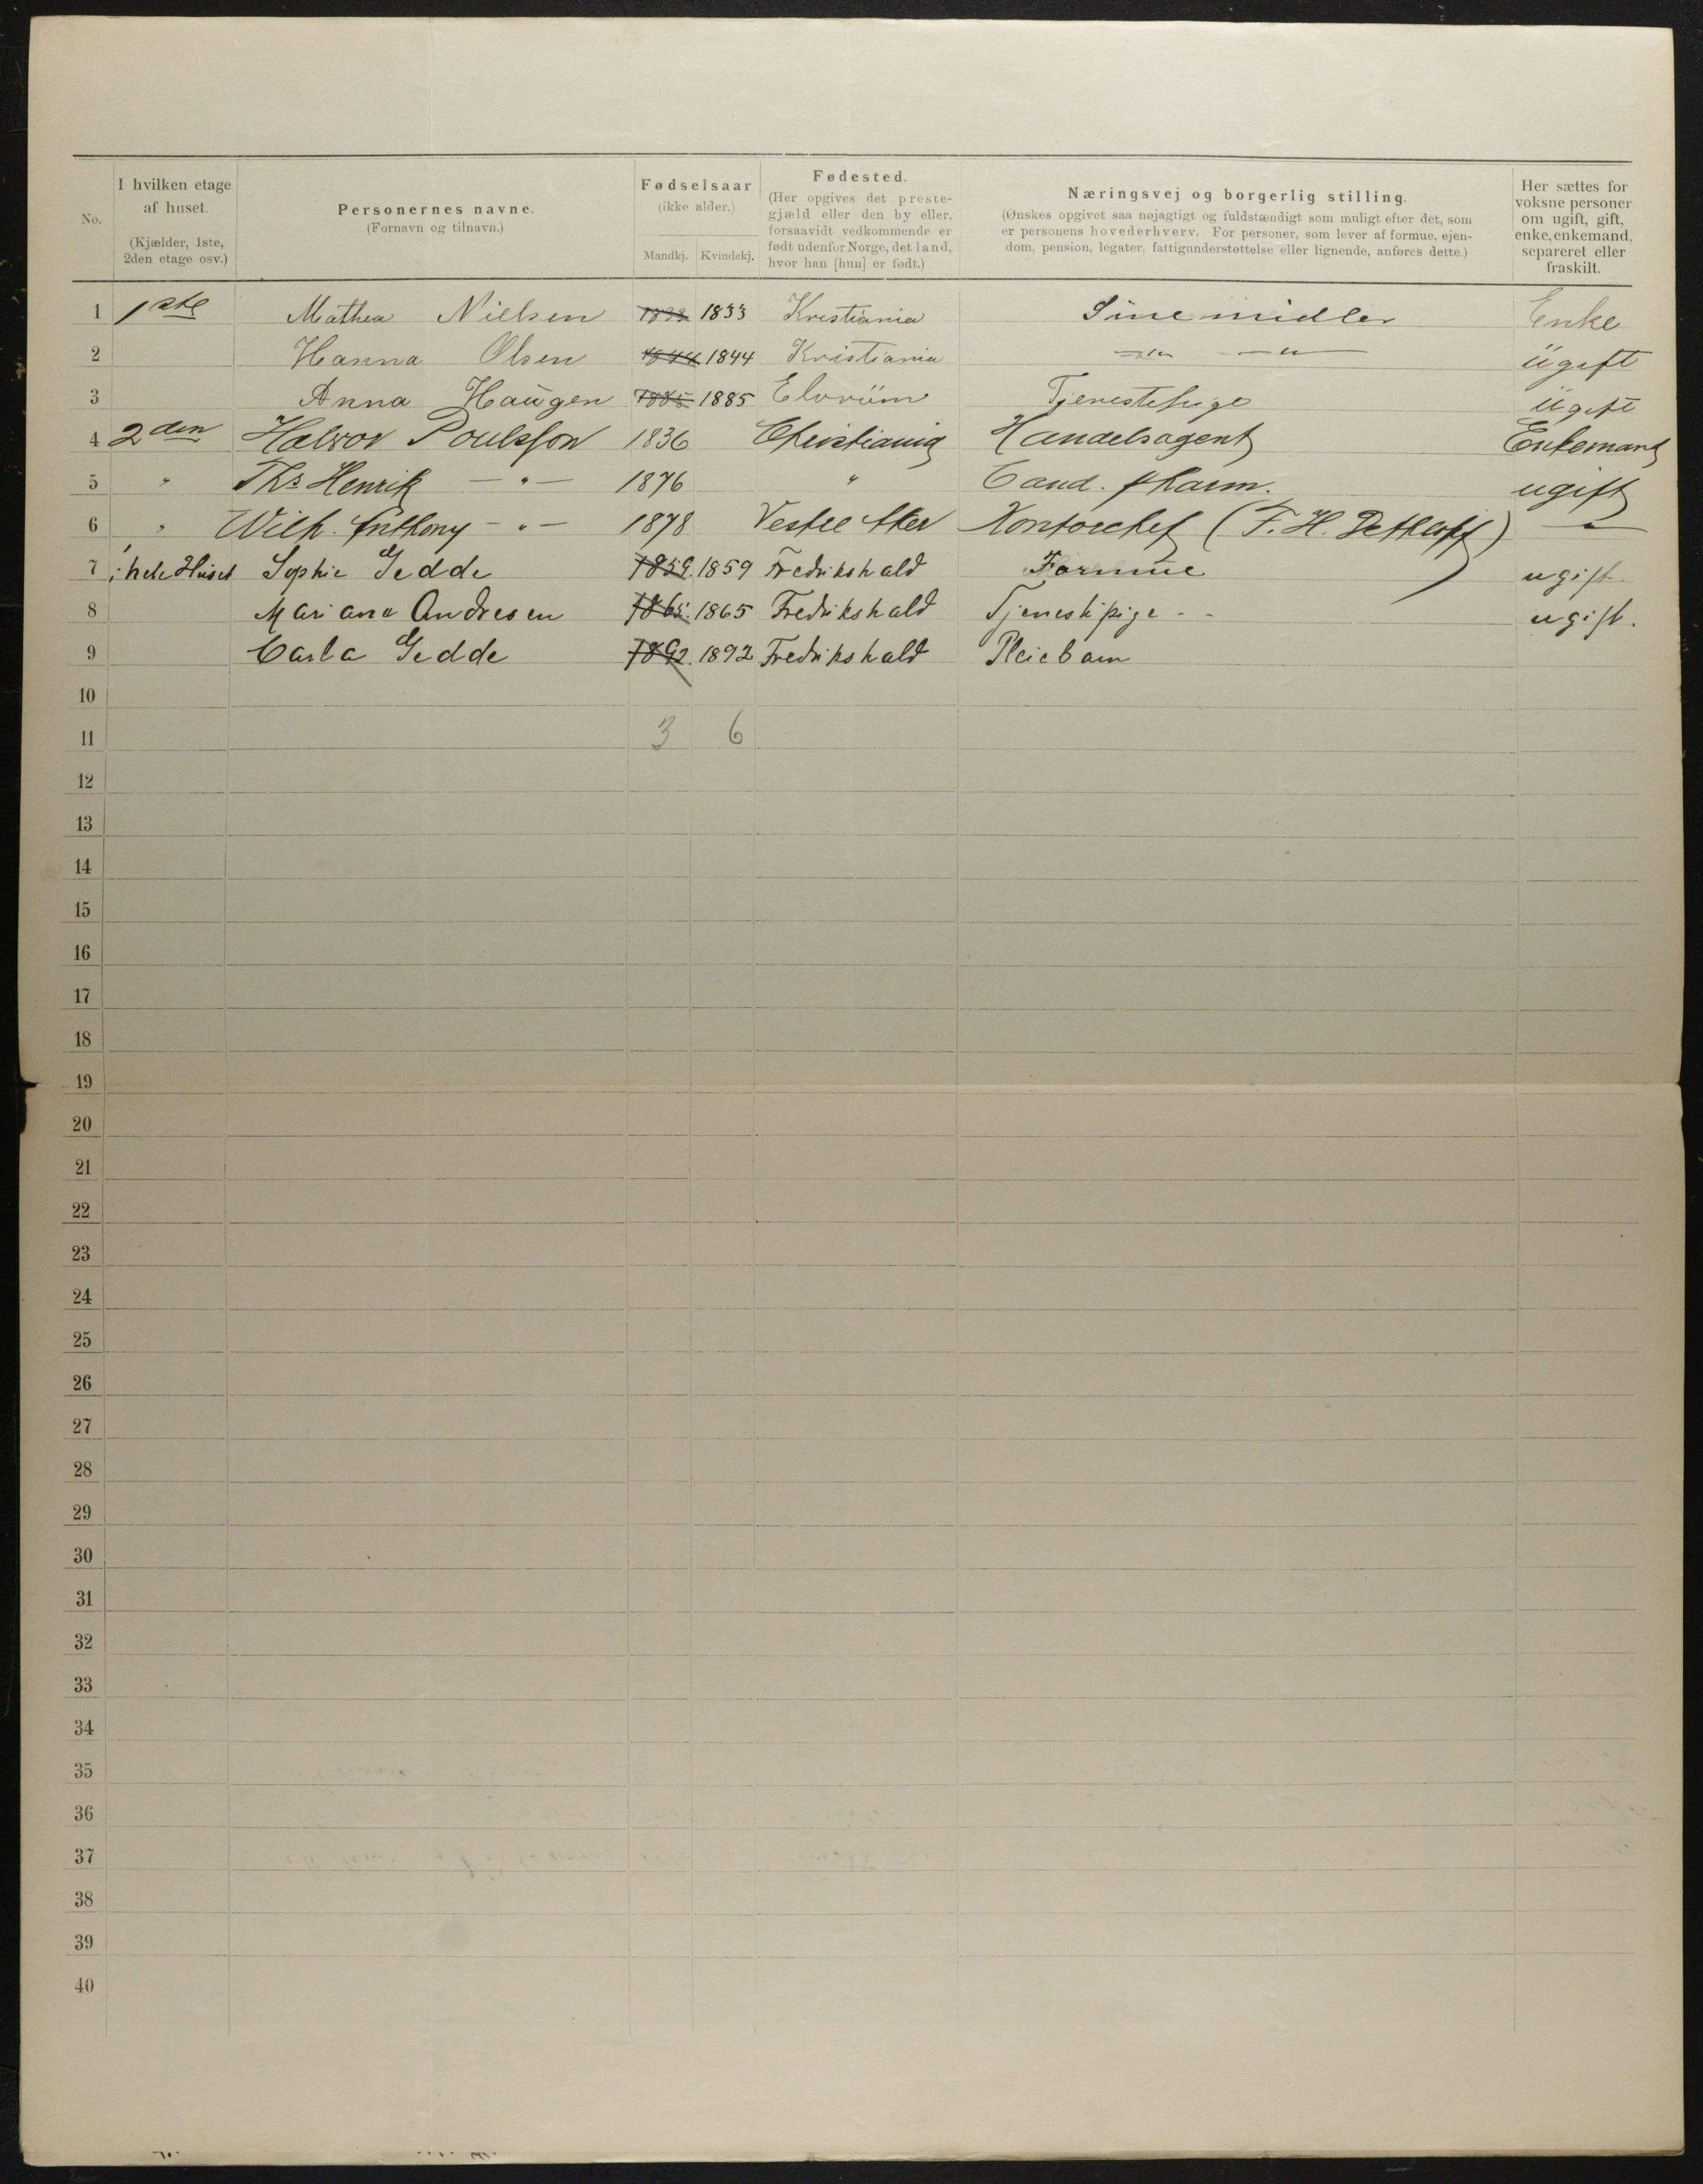 No.
I hvilken etage af huset.
(Kjælder, 1ste, 2den etage osv.)
Personernes navne.
(Fornavn og tilnavn.)
Fødselsaar
(ikke alder.)
Mandkj. Kvindekj.
Fødested.
(Her opgives det prestegjæld eller den by eller, forsaavidt vedkommende er født udenfor Norge, det land, hvor han [hun] er født.)
Næringsvej og borgerlig stilling.
(Ønskes opgivet saa nøjagtigt og fuldstændigt som muligt efter det, som er personens hovederhverv. For personer, som lever af formue, ejendom, pension, legater, fattigunderstøttelse eller lignende, anføres dette.)
Her sættes for voksne personer om ugift, gift, enke, enkemand, separeret eller fraskilt.
1 1ste Mathea Nielsen 1833 1833 Kristiania Sine midler Enke
2 Hanna Olsen 1844 1844 Kristiania —"— —"— ügift
3 Anna Haugen 1885 1885 Elvrüm Tjenestepige ügift
4 2den Halvor Poulsson 1836 Christiania Handelsagent Enkemand
5 " Ths Henrik —"— 1876 " Cand. pharm. ugift
6 " Wilh. Anthony —"— 1878 Vestre Aker Kontorchef (F. H. Dethloff) —"—
7 i hele Huset Sophie Gedde 1859. 1859 Fredrikshald Formue ugift.
8 Mariane Andresen 1865. 1865 Fredrikshald Tjenestepige - - ugift.
9 Carla Gedde 1892. 1892 Fredrikshald Pleiebarn
10
11 3 6
12
13
14
15
16
17
18
19
20
21
22
23
24
25
26
27
28
29
30
31
32
33
34
35
36
37
38
39
40